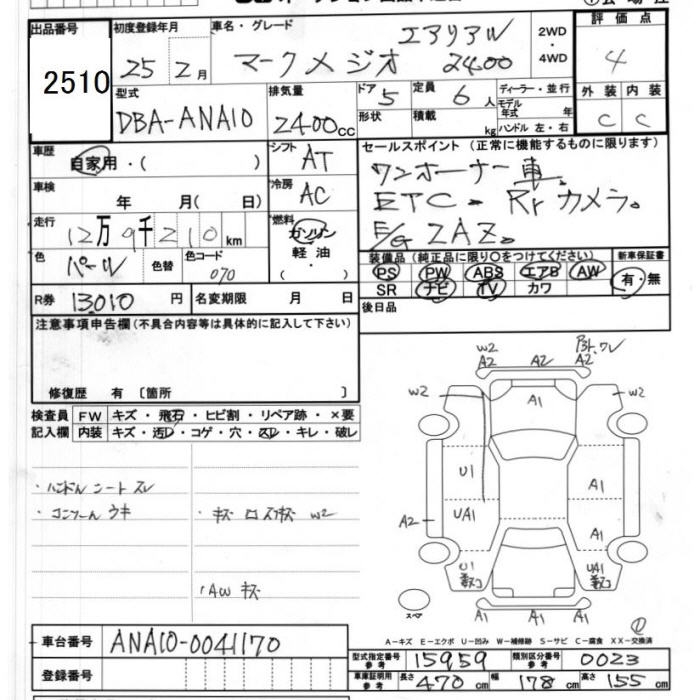 出品番号
2510
初度登録年月
25年 2月
車名・グレード
エアリアル
マークXジオ 2400
2WD
・
4WD
評価点
4
外装 内装
C C
型式
DBA-ANA10
排気量
2400cc
ドア 5
形状
定員 6人
積載 kg
ディーラー・並行
モデル年式 年
ハンドル 左・右
車歴
自家用・( )
シフト AT
車検 年 月( 日)
冷房 AC
走行
12万9千210km
燃料
ガソリン
軽油
・( )
色 パール
色替
色コード 070
R券 13,010円
名変期限 月 日
セールスポイント (正常に機能するものに限ります)
ワンオーナー車。
ETC. Rrカメラ。
E/G 2AZ。
装備品 (純正品に限り○をつけてください)
PS PW ABS エアB AW
SR ナビ TV カワ
新車保証書
有・無
後日品
注意事項申告欄(不具合内容等は具体的に記入して下さい)
修復歴 有 〔箇所 〕
検査員
記入欄
FW キズ・飛石・ヒビ割・リペア跡・×要
内装 キズ・汚レ・コゲ・穴・スレ・キレ・破レ
・ハンドル シート スレ
・コンソール ウキ
・AW キズ
W2
A2 A2 A2
W2 A1 W2
U1 A1
A2 UA1 A1
U1 UA1
A1 A1 A1
スペア
A−キズ E−エクボ U−凹み W−補修跡 S−サビ C−腐食 XX−交換済
車台番号 ANA10-0041170
登録番号
型式指定番号 参考 15959
類別区分番号 参考 0023
車庫証明用 参考 長さ 470cm 幅 178cm 高さ 155cm